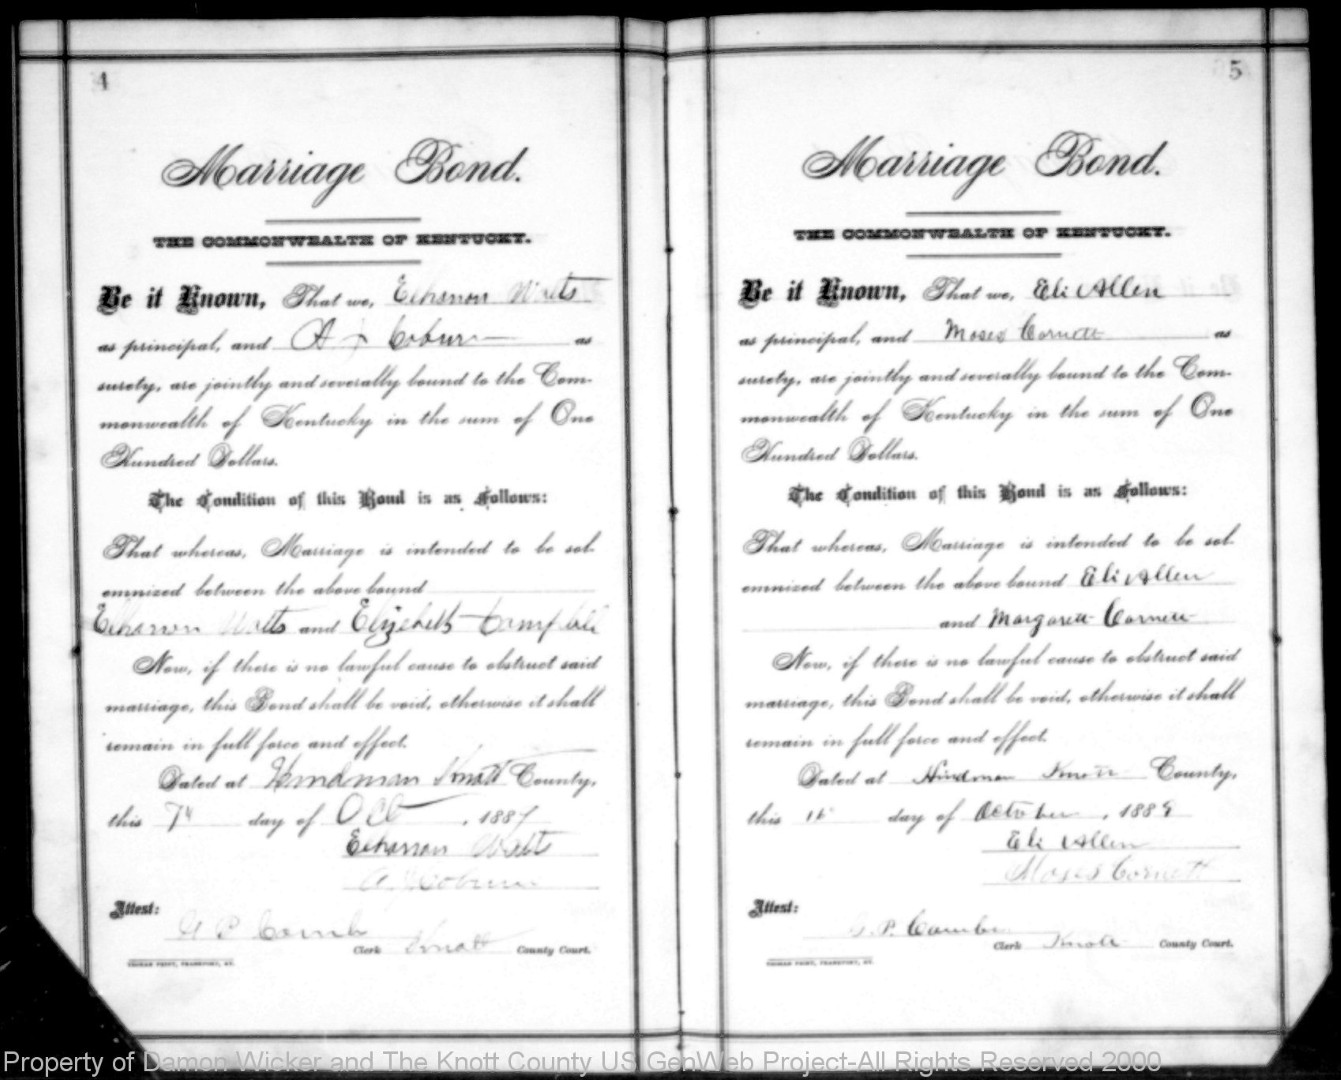 4
Marriage Bond.
THE COMMONWEALTH OF KENTUCKY.
Be it Known, That we, Elhanon Watts
as principal, and A J Coburn as
surety, are jointly and severally bound to the Com-
monwealth of Kentucky in the sum of One
Hundred Dollars.
The Condition of this Bond is as Follows:
That whereas, Marriage is intended to be sol-
emnized between the above bound
Elhanon Watts and Elizebeth Campbell
Now, if there is no lawful cause to obstruct said
marriage, this Bond shall be void, otherwise it shall
remain in full force and effect.
Dated at Hindman Knott County,
this day of Oct, 188
Elhanan Watts
A J Coburn
Attest:
P Comb
Clerk Knott County Court.
5
Marriage Bond.
THE COMMONWEALTH OF KENTUCKY.
Be it Known, That we, Eli Allen
as principal, and Moses Cornett as
surety, are jointly and severally bound to the Com-
monwealth of Kentucky in the sum of One
Hundred Dollars.
The Condition of this Bond is as Follows:
That whereas, Marriage is intended to be sol-
emnized between the above bound Eli Allen
and Margarett Cornett
Now, if there is no lawful cause to obstruct said
marriage, this Bond shall be void, otherwise it shall
remain in full force and effect.
Dated at Hindman Knott County,
this day of October, 188
Eli Allen
Moses Cornett
Attest:
P. Combs
Clerk Knott County Court.
Property of Damon Wicker and The Knott County US GenWeb Project-All Rights Reserved 2000